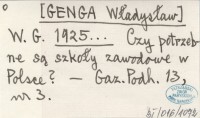 [GENGA Władysław]
W. G. 1925... Czy potrzeb-
ne są szkoły zawodowe w
Polsce? — Gaz. Podh. 13,
nr 3.